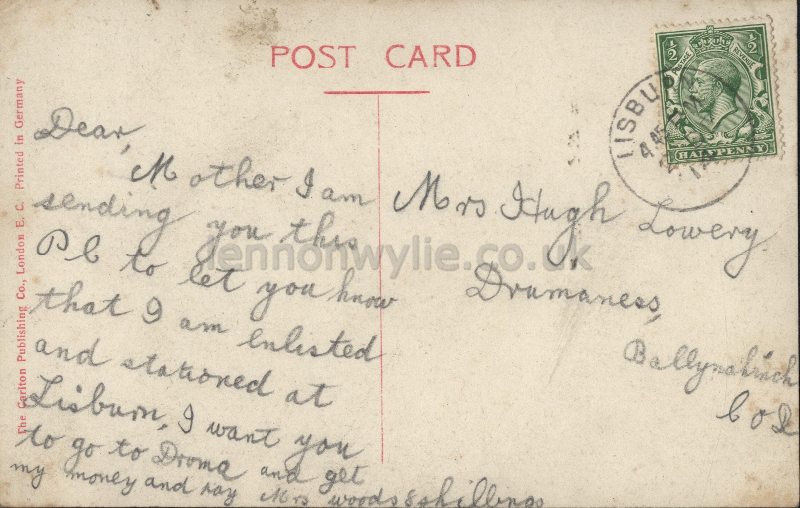 POST CARD
Dear,
Mother I am
sending you this
P C to let you know
that I am enlisted
and stationed at
Lisburn, I want you
to go to Droma and get
my money and pay Mrs woods 8 shillings
Mrs Hugh Lowery
Drumaness,
Ballynahinch
Co D
LISBURN
4.45 PM
14
½ ½
POSTAGE REVENUE
HALFPENNY
The Carlton Publishing Co., London E. C. Printed in Germany
lennonwylie.co.uk